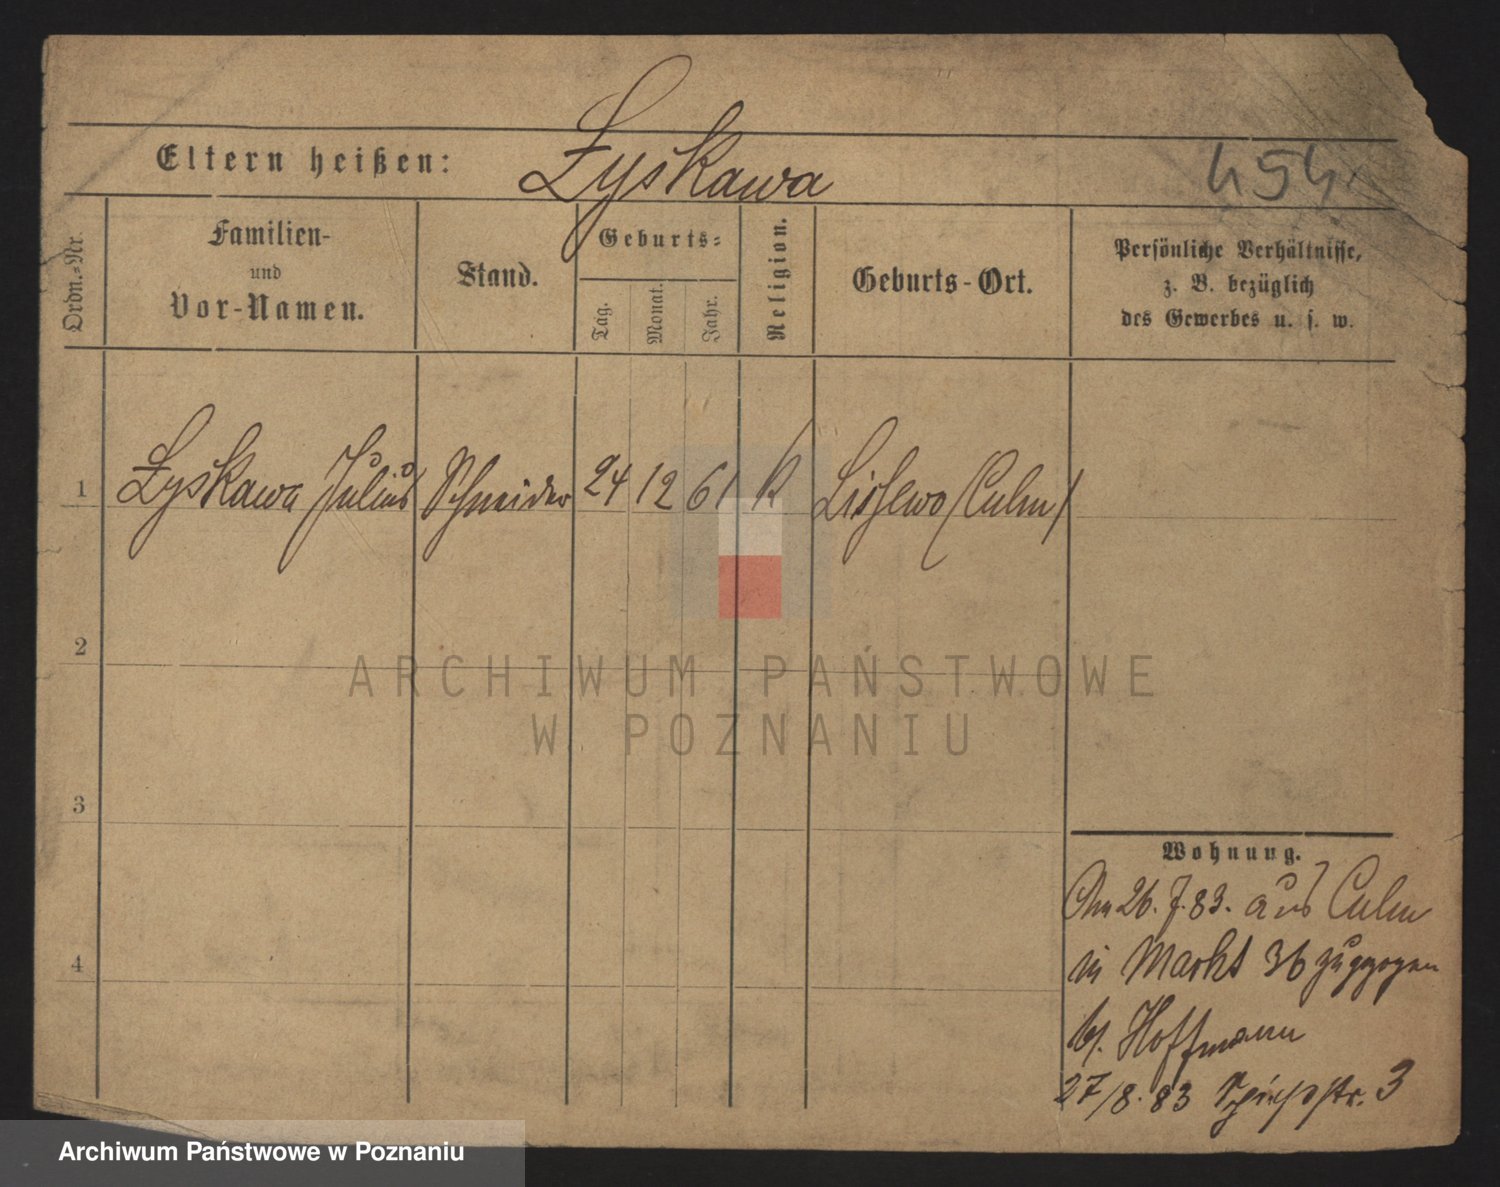 Eltern heißen: Łyskawa
454
Ordn.=Nr.
Familien-
und
Vor-Namen.
Stand.
Geburts=
Tag.
Monat.
Jahr.
Religion.
Geburts-Ort.
Persönliche Verhältnisse,
z. B. bezüglich
des Gewerbes u. s. w.
1 Łyskawa Julius Schneider 24 12 61 K Lissewo (Culm)
2
3
4
Wohnung.
Am 26. 7. 83. aus Culm
in Markt 36 zugezogen
b/. Hoffmann
27/8. 83 3
ARCHIWUM PAŃSTWOWE
W POZNANIU
Archiwum Państwowe w Poznaniu